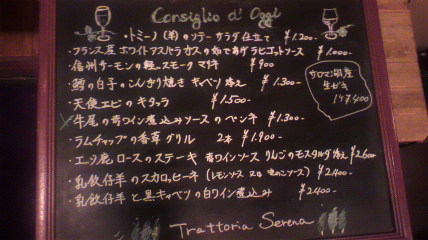 Consiglio di Oggi
・トミーノ(羊)のソテー サラダ仕立て ¥1.200-
・フランス産 ホワイトアスパラガスの 温てあげ ラビゴットソース ¥1.000-
・信州サーモンの軽いスモーク マリネ ¥900
・鱈の白子のこんがり焼き キャベツ添え ¥1.300-
・天使エビの ¥1.500-
・牛尾の赤ワイン煮込みソースの ペンネ ¥1.300-
・ラムチャップの香草グリル 2本 ¥1.900-
・ロースのステーキ 赤ワインソース りんごのモスタルダ添え ¥2.600-
・乳飲仔羊のスカロッピーネ (レモンソース 又は きのこソース) ¥2.400-
・乳飲仔羊と黒キャベツの白ワイン煮込み ¥2.400-
サロマ湖産
生ガキ
1ヶ¥400
Trattoria Serena